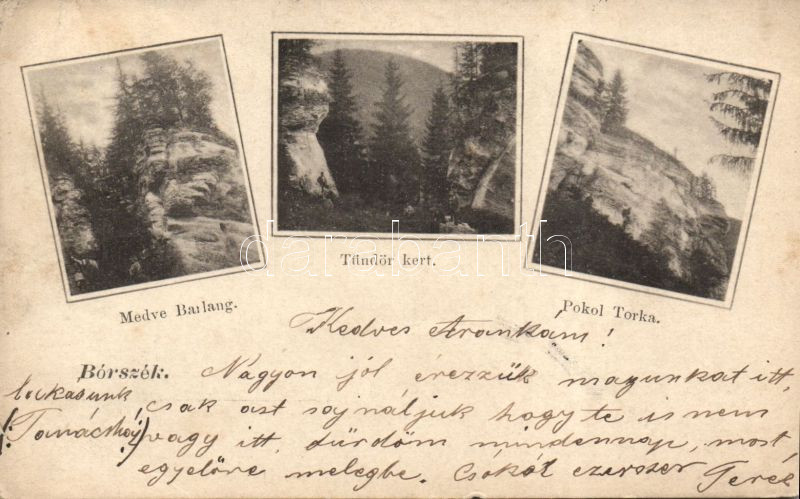 Medve Barlang.
Tündör kert.
Pokol Torka.
darabanth
Bórszék.
Kedves Arankám!
Nagyon jól érezzük magunkat itt,
csak ast sajnáljuk hogy te is nem
vagy itt, fürdöm mindennap, most
egyelőre melegbe. Csókol ezerszer Tercé
lakásunk
(: Tanácsház)